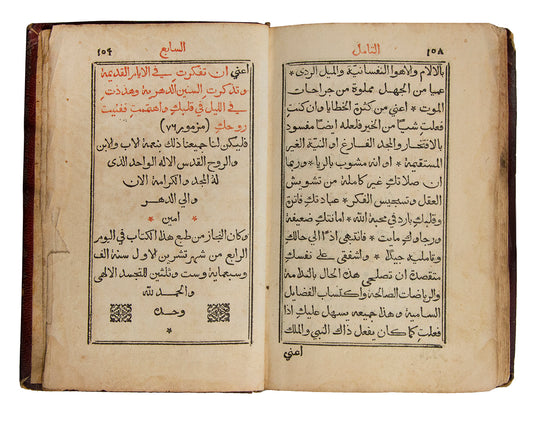 ١٥٨ التامل
بالالام ولاهوا النفسانية والميل الردى *
عميا من الجهل مملوة من جراحات
الموت * اعني من كثرة الخطايا وان كنتِ
فعلتِ شيًا من الخير فلعله ايضًا مفسود
بالافتخار والمجد الفارغ او النية الغير
المستقيمة * او انه مشوب بالريا * وربما
ان صلاتكِ غير كاملة من تشويش
العقل وتسجيس الفكر * عبادتكِ فاترة
وقلبكِ بارد في محبة الله * امانتكِ ضعيفة
ورجاوكِ مايت * اذًا الى حالك
وتامليه جيدًا * واشفقي على نفسك
متقصدة ان تصلحي هذا الحال بالندامة
والرياضات الصالحة واكتساب الفضايل
السامية * وهذا جميعه يسهل عليكِ اذا
فعلتِ كما كان يفعل ذاك النبي والملك
اعني
السابع ١٥٩
اعني ان تفكرتِ في الايام القديمة
وتذكرتِ السنين الدهرية وهذذتِ
في الليل في قلبكِ واهتممتِ ففتيت
روحكِ (مزمور ٧٦)
فليكن لنا جميعنا ذلك بنعمة الاب والابن
والروح القدس الاله الواحد الذى
له المجد والكرامة الان
والى الدهر
* امين *
وكان النجاز من طبع هذا الكتاب في اليوم
الرابع من شهر تشرين الاول سنة الف
وسبعماية وست وثلثين للتجسد الالهي
والحمد لله
وحده
*